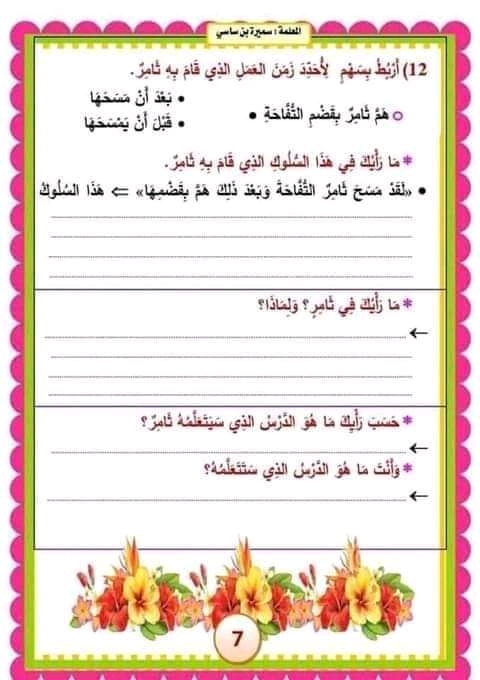 المعلمة : سميرة بن ساسي
12) أَرْبُطُ بِسَهْمٍ لِأُحَدِّدَ زَمَنَ العَمَلِ الذِي قَامَ بِهِ ثَامِرٌ .
• بَعْدَ أَنْ مَسَحَهَا
هَمَّ ثَامِرٌ بِقَضْمِ التُّفَّاحَةِ •
• قَبْلَ أَنْ يَمْسَحَهَا
* مَا رَأْيُكَ فِي هَذَا السُّلُوكِ الذِي قَامَ بِهِ ثَامِرٌ.
• «لَقَدْ مَسَحَ ثَامِرٌ التُّفَّاحَةَ وَبَعْدَ ذَلِكَ هَمَّ بِقَضْمِهَا» ⇐ هَذَا السُّلُوكُ
* مَا رَأْيُكَ فِي ثَامِرٍ؟ وَلِمَاذَا؟
←
* حَسَبَ رَأْيِكَ مَا هُوَ الدَّرْسُ الذِي سَيَتَعَلَّمُهُ ثَامِرٌ؟
←
* وَأَنْتَ مَا هُوَ الدَّرْسُ الذِي سَتَتَعَلَّمُهُ؟
←
7